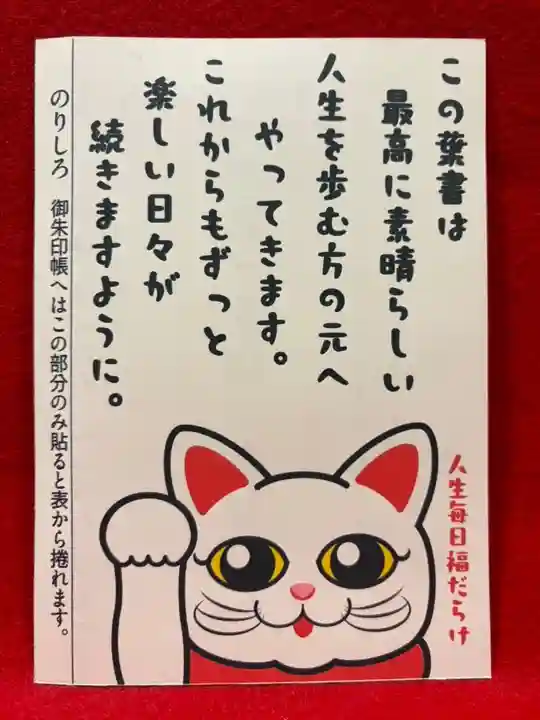 この葉書は
最高に素晴らしい
人生を歩む方の元へ
やってきます。
これからもずっと
楽しい日々が
続きますように。
人生毎日福だらけ
のりしろ 御朱印帳へはこの部分のみ貼ると表から捲れます。